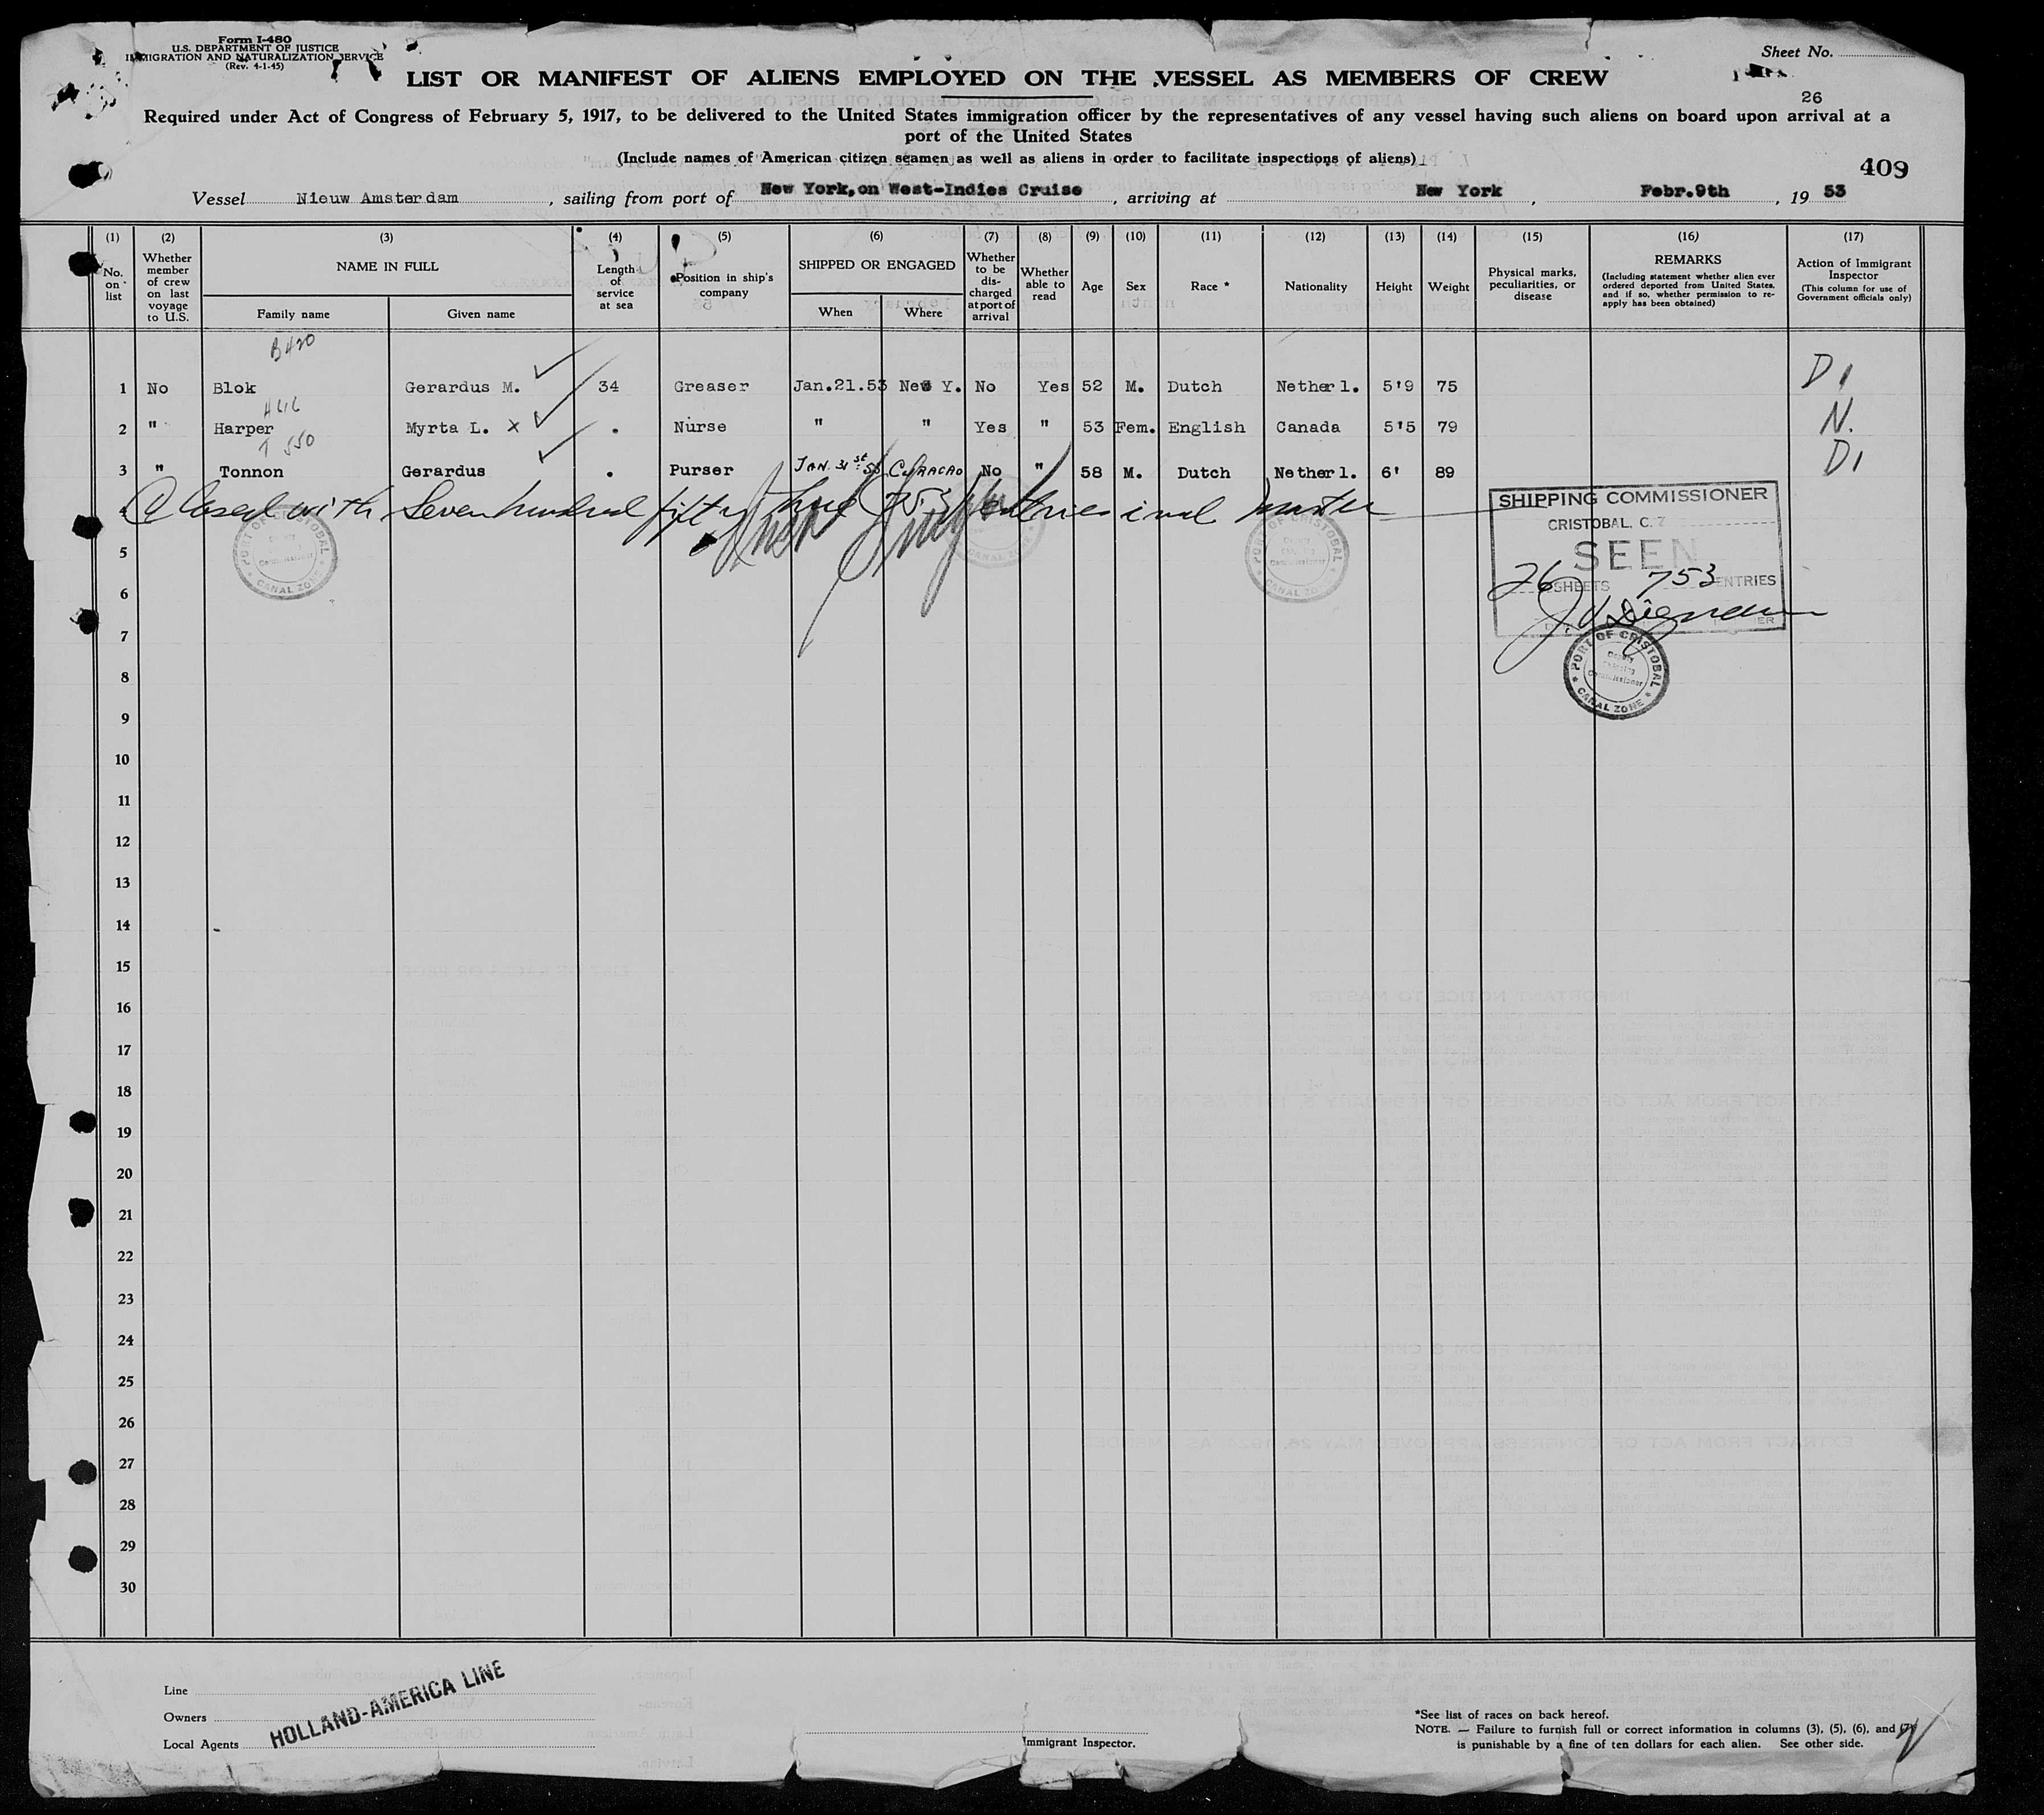 Form I-480
U.S. DEPARTMENT OF JUSTICE
IMMIGRATION AND NATURALIZATION SERVICE
(Rev. 4-1-45)
Sheet No.
LIST OR MANIFEST OF ALIENS EMPLOYED ON THE VESSEL AS MEMBERS OF CREW
26
Required under Act of Congress of February 5, 1917, to be delivered to the United States immigration officer by the representatives of any vessel having such aliens on board upon arrival at a
port of the United States
(Include names of American citizen seamen as well as aliens in order to facilitate inspections of aliens)
409
Vessel Nieuw Amsterdam, sailing from port of New York, on West-Indies Cruise, arriving at New York, Febr.9th, 19 53
(1) (2) (3) (4) (5) (6) (7) (8) (9) (10) (11) (12) (13) (14) (15) (16) (17)
No. on list
Whether member of crew on last voyage to U.S.
NAME IN FULL
Family name
Given name
Length of service at sea
Position in ship's company
SHIPPED OR ENGAGED
When
Where
Whether to be discharged at port of arrival
Whether able to read
Age
Sex
Race *
Nationality
Height
Weight
Physical marks, peculiarities, or disease
REMARKS
(Including statement whether alien ever ordered deported from United States, and if so, whether permission to re-apply has been obtained)
Action of Immigrant Inspector
(This column for use of Government officials only)
B420
1 No Blok Gerardus M. 34 Greaser Jan.21.53 New Y. No Yes 52 M. Dutch Netherl. 5'9 75 D1
2 " Harper Myrta L. x . Nurse " " Yes " 53 Fem. English Canada 5'5 79 N.
T 550
3 " Tonnon Gerardus . Purser JAN. 31st 53 CURACAO No " 58 M. Dutch Netherl. 6' 89 D1
Closed with Seven hundred fifty three (753) entries incl master
SHIPPING COMMISSIONER
CRISTOBAL, C. Z.
SEEN
26 SHEETS 753 ENTRIES
PORT OF CRISTOBAL
Deputy Shipping Commissioner
CANAL ZONE
PORT OF CRISTOBAL
Deputy Shipping Commissioner
CANAL ZONE
CANAL ZONE
PORT OF CRISTOBAL
Deputy Shipping Commissioner
CANAL ZONE
4
5
6
7
8
9
10
11
12
13
14
15
16
17
18
19
20
21
22
23
24
25
26
27
28
29
30
Line
Owners
Local Agents
HOLLAND-AMERICA LINE
Immigrant Inspector.
*See list of races on back hereof.
NOTE. — Failure to furnish full or correct information in columns (3), (5), (6), and (7)
is punishable by a fine of ten dollars for each alien. See other side.